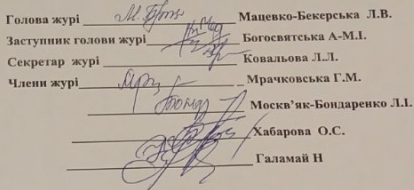 Голова журі Мацевко-Бекерська Л.В.
Заступник голови журі Богосвятська А-М.І.
Секретар журі Ковальова Л.Л.
Члени журі Мрачковська Г.М.
Москв'як-Бондаренко Л.І.
Хабарова О.С.
Галамай Н